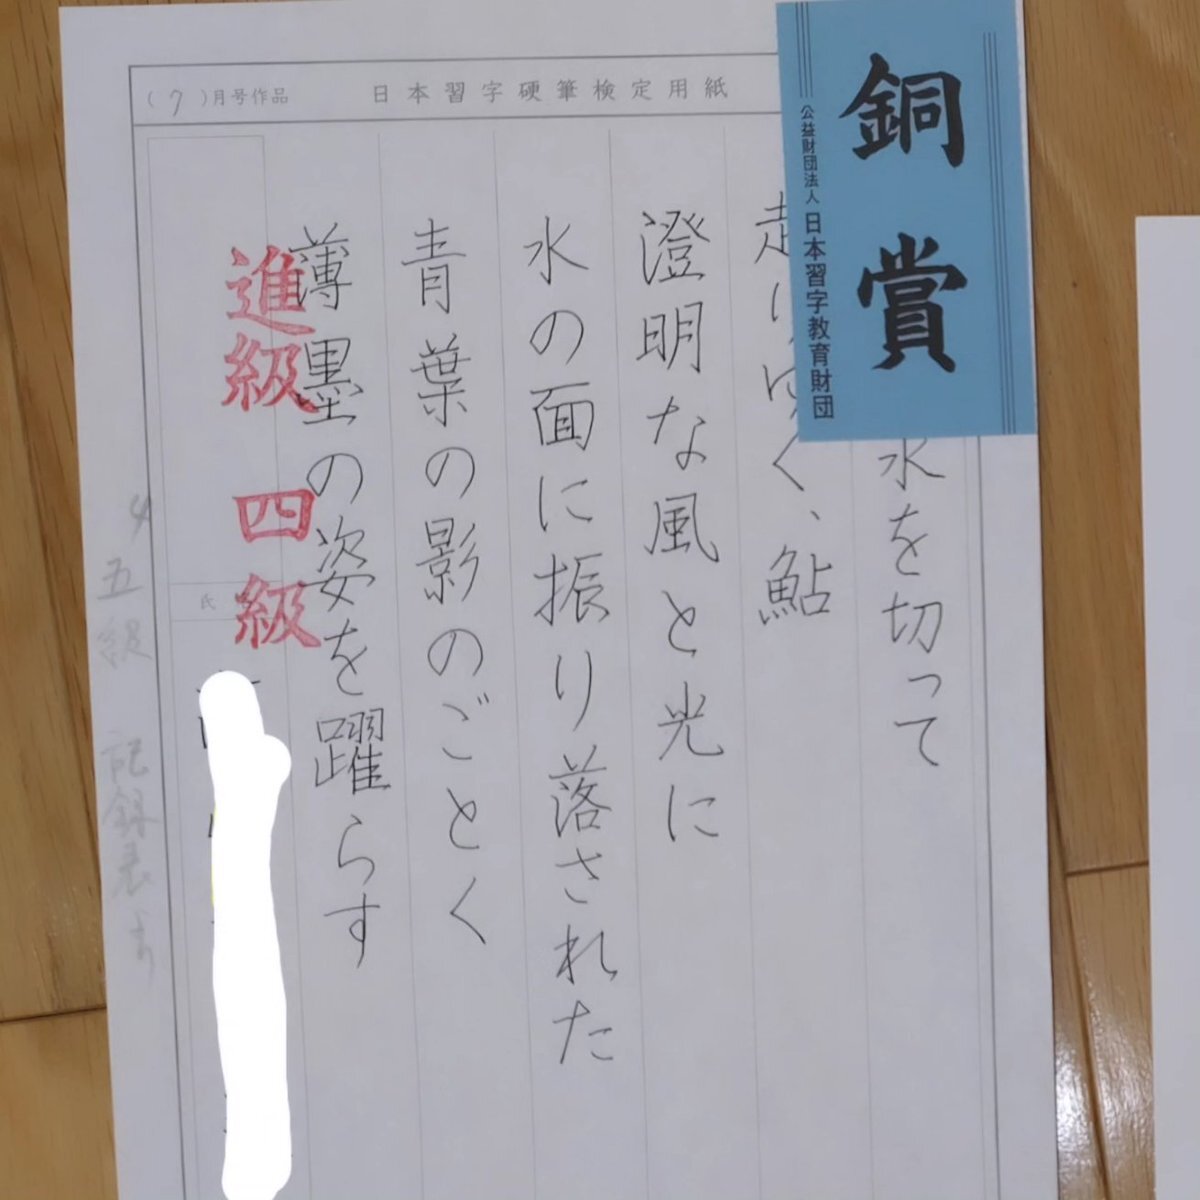 (7)月号作品
日本習字硬筆検定用紙
銅賞
公益財団法人 日本習字教育財団
水を切って
走りゆく、鮎
澄明な風と光に
水の面に振り落された
青葉の影のごとく
薄墨の姿を躍らす
進級 四級
氏
五級 記録表